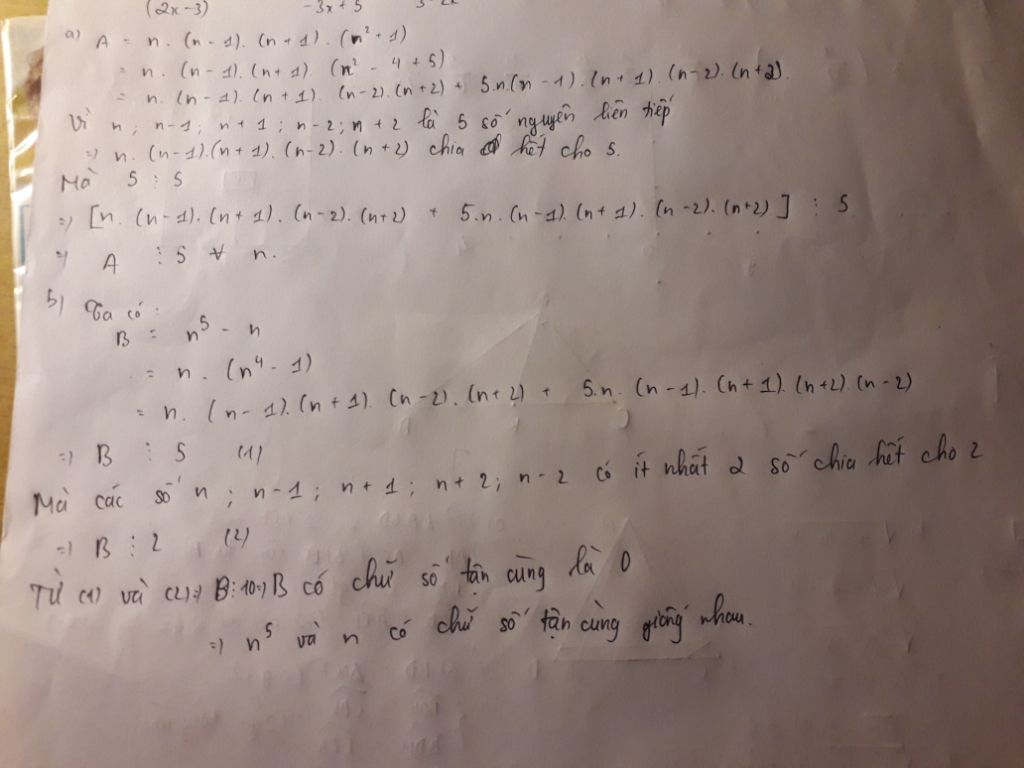 (2x-3) -3x+5
a) A = n. (n-1). (n+1). (n²+1)
= n. (n-1). (n+1). (n² - 4 + 5)
= n. (n-1). (n+1). (n-2). (n+2) + 5.n.(n-1). (n+1). (n-2). (n+2).
Vì n; n-1; n+1; n-2; n+2 là 5 số nguyên liên tiếp
=) n. (n-1).(n+1). (n-2). (n+2) chia hết cho 5.
Mà 5 ⋮ 5
=) [n. (n-1). (n+1). (n-2). (n+2) + 5.n. (n-1). (n+1). (n-2). (n+2)] ⋮ 5
=) A ⋮ 5 ∀ n.
b) Ta có:
B = n⁵ - n
= n. (n⁴ - 1)
= n. (n-1). (n+1). (n-2). (n+2) + 5.n. (n-1). (n+1). (n+2). (n-2)
=) B ⋮ 5 (1)
Mà các số n; n-1; n+1; n+2; n-2 có ít nhất 2 số chia hết cho 2
=) B ⋮ 2 (2)
Từ (1) và (2)=) B⋮10=) B có chữ số tận cùng là 0
=) n⁵ và n có chữ số tận cùng giống nhau.